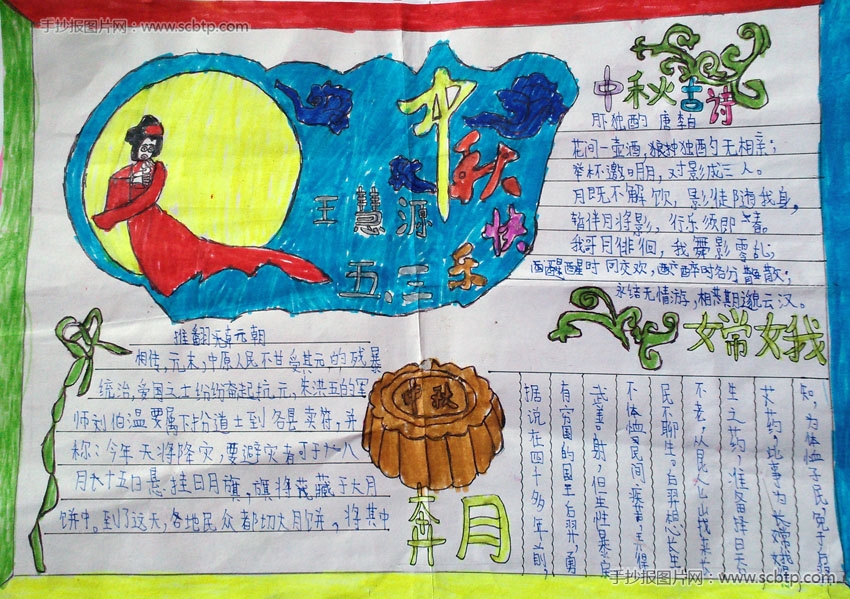 手抄报图片网：www.scbtp.com
www.scbtp.com
中秋快乐
王慧源
五、三
中秋古诗
月独酌 唐 李白
花间一壶酒，独酌无相亲；
举杯邀明月，对影成三人。
月既不解饮，影徒随我身，
暂伴月将影，行乐须即春。
我哥月徘徊，我舞影零乱；
醒时同交欢，醉时各分散；
永结无情游，相期邈云汉。
推翻元朝
相传，元末，中原人民不甘受其元的残暴
统治，爱国之士纷纷奋起抗元，朱洪五的军
师刘伯温要属下扮道士到各县卖符，并
称：今年天将降灾，要避灾者可于八
月十五日悬挂日月旗，旗将藏于大月
饼中。到了这天，各地民众都切大月饼，将其中
中秋
嫦娥
奔月
据说在四千多年前，
有穷国的国王后羿，勇
武善射，但生性暴戾
不体恤民间疾苦，
民不聊生。后羿想长生
不老，从昆仑山找来长
生之药，准备择日
此事为
知，为体恤子民，免于
手抄报图片网：www.scbtp.com